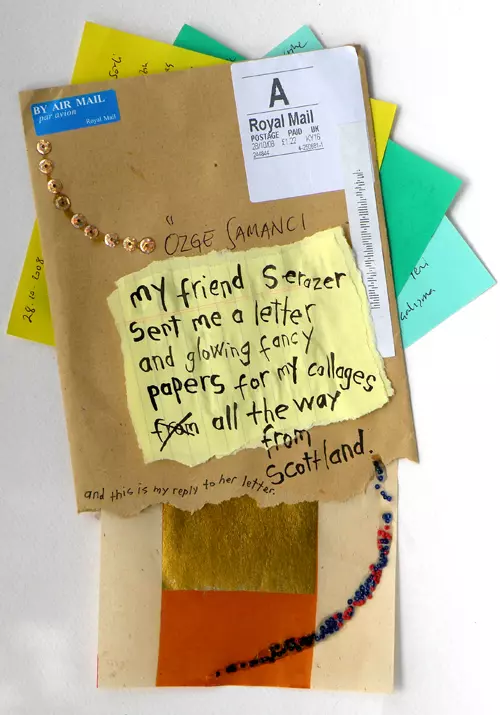 BY AIR MAIL
par avion
Royal Mail
A
Royal Mail
POSTAGE PAID UK
28/10/08 £1.22 KY16
ÖZGE SAMANCI
my friend Serazer
Sent me a letter
and glowing fancy
papers for my collages
from all the way
from
Scottland.
and this is my reply to her letter.
28.10.2008
yeni